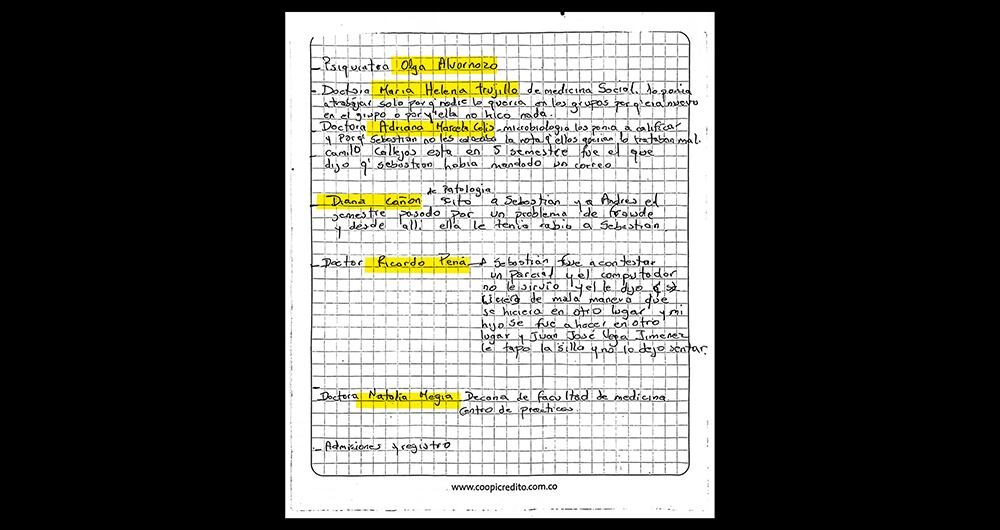 - Psiquiatra Olga Alvornozo
- Doctora Maria Helena Trujillo de medicina Social, lo ponia
a trabajar solo porq' nadie lo queria en los grupos porq' era nuevo
en el grupo o por q' ella no hico nada.
- Doctora Adriana Marcela Celis - microbiologia los ponia a calificar
y Porq' Sebastian no les colocaba la nota q' ellos querian lo trataban mal.
Camilo Callejas esta en 5 semestre fue el que
- dijo q' sebastian habia mandado un correo
de Patologia
- Diana Cañon Sito a Sebastian y a Andres el
semestre pasado por un problema de fraude
y desde alli ella le tenia rabia a Sebastian
- Doctor Ricardo Pena Sebastian fue a contestar
un parcial y el computador
no le sirvio y el le dijo q' se
hiciera de mala manera que
se hiciera en otro lugar y mi
hijo se fue a hacer en otro
lugar y Juan José Vega Jimenez
le tapo la silla y no lo dejo sentar.
Doctora Natalia Megia Decana de facultad de medicina
Centro de practicas.
- Admisiones y registro
www.coopicredito.com.co